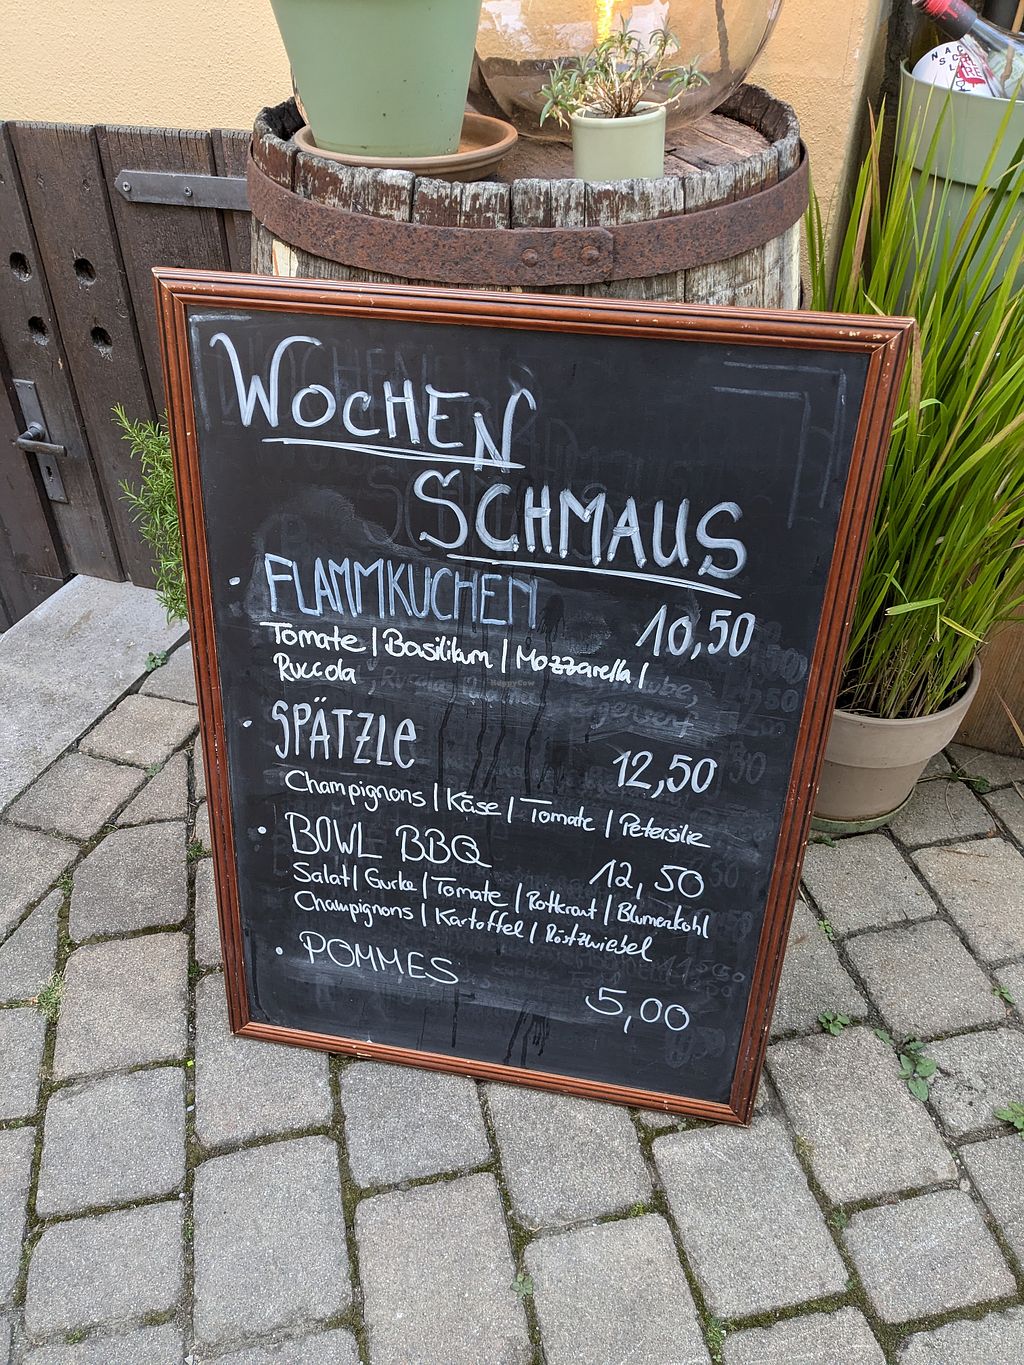 NACH
SCHL
WOCHEN
SCHMAUS
- FLAMMKUCHEN 10,50
Tomate | Basilikum | Mozzarella |
Ruccola
- SPÄTZLE 12,50
Champignons | Käse | Tomate | Petersilie
• BOWL BBQ 12,50
Salat | Gurke | Tomate | Rotkraut | Blumenkohl
Champignons | Kartoffel | Röstzwiebel
• POMMES 5,00
HappyCow